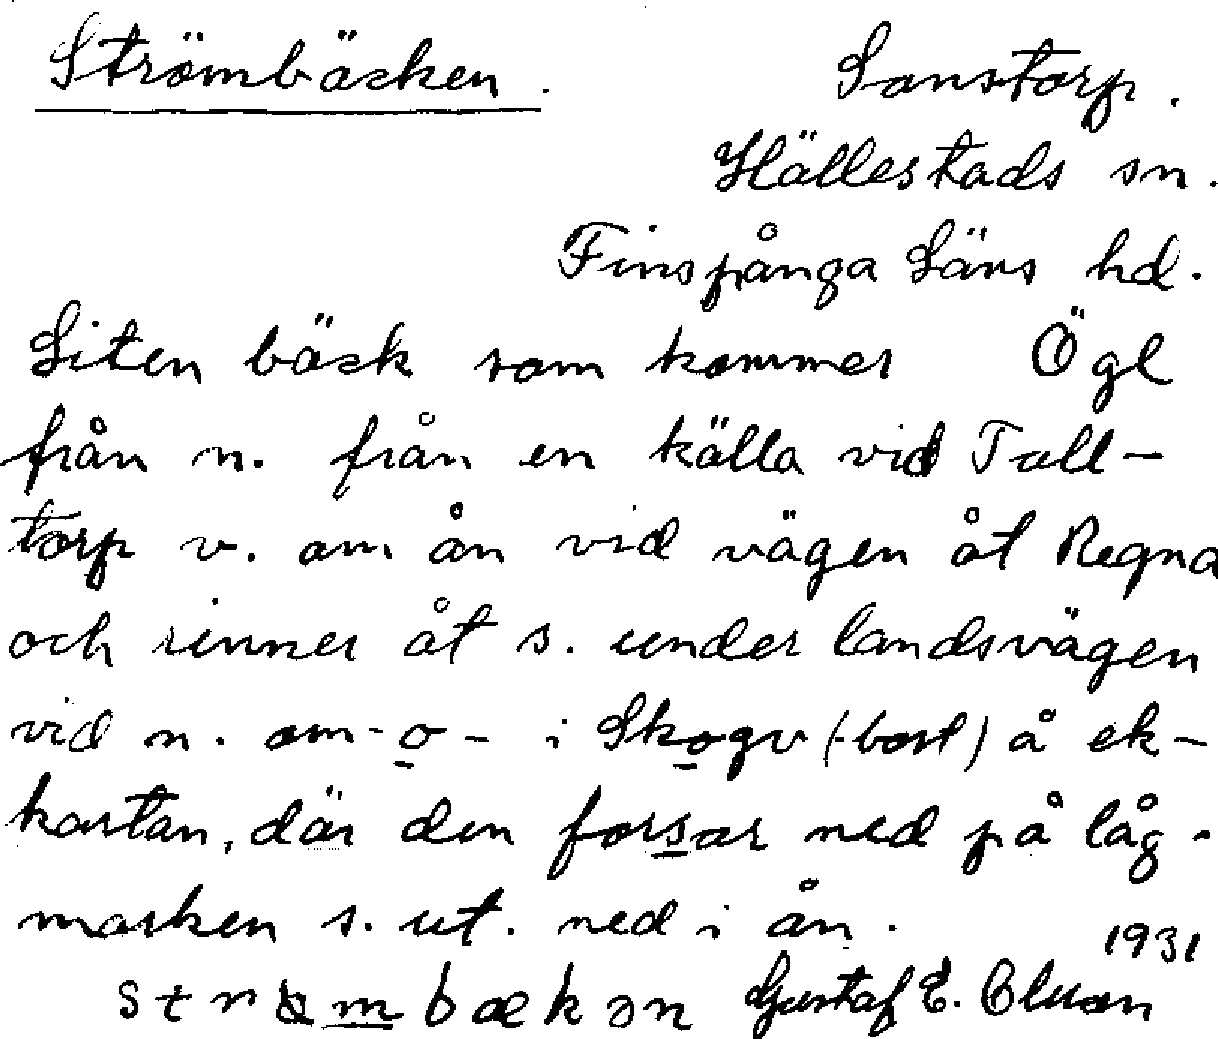 Strömbäcken.
Sonstorp.
Hällestads sn.
Finspånga Läns hd.
Liten bäck som kommer Ögl
från n. från en källa vid Tall-
torp v. om ån vid vägen åt Regna
och rinner åt s. under landsvägen
vid n. om -o- i Skogv (-bost) å ek-
kartan, där den forsar ned på låg-
marken s. ut. ned i ån.
1931
Gustaf E.